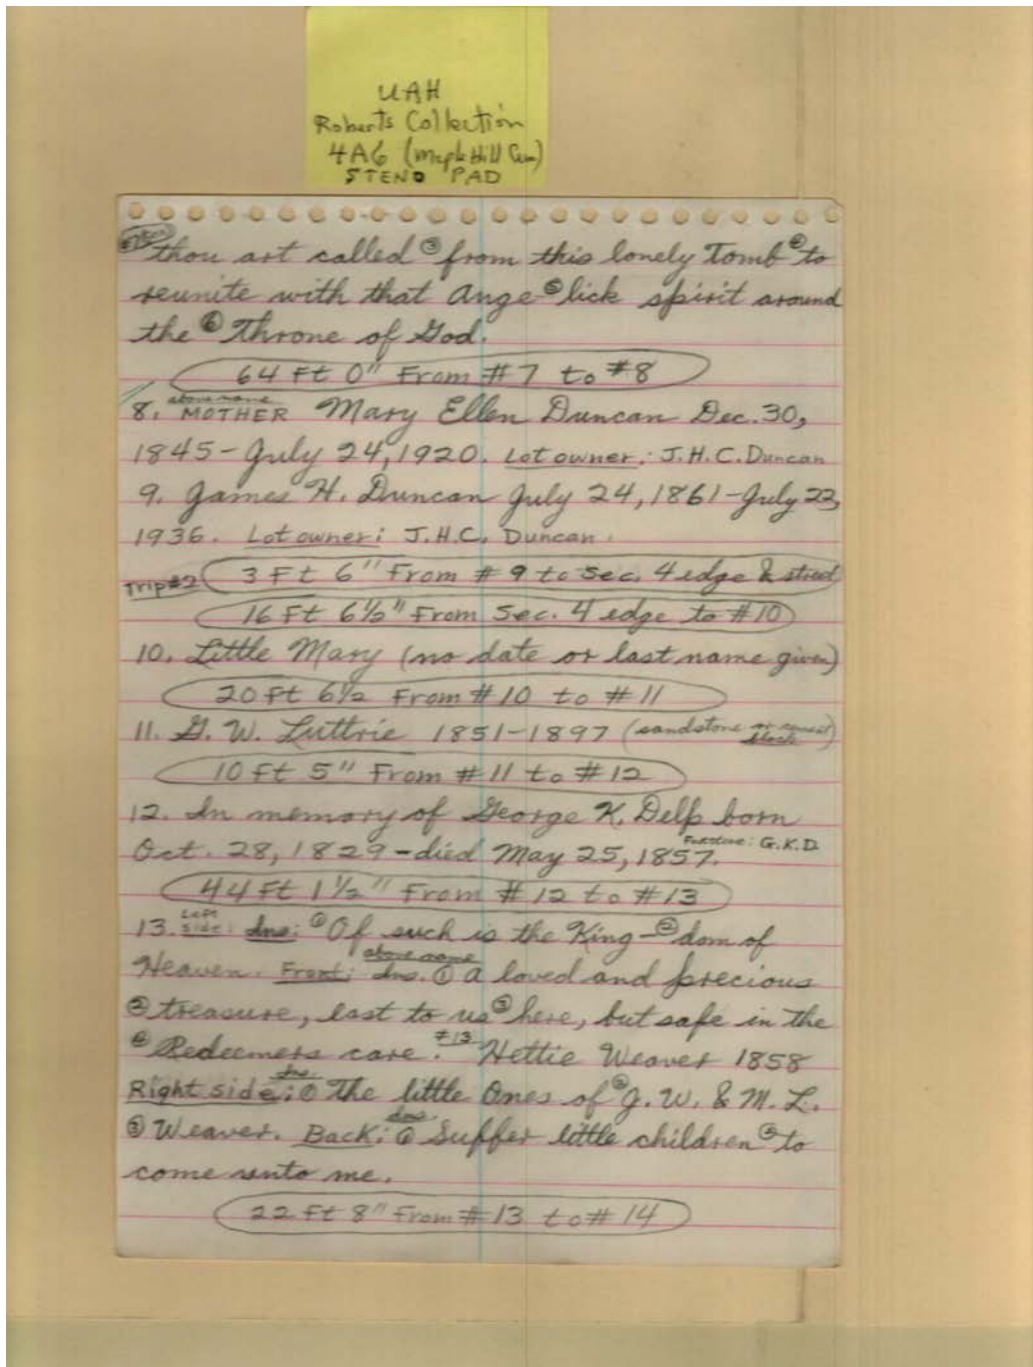 UAH
Roberts Collection
4A6 (Maple Hill Cem)
STENO PAD
thou art called ③ from this lonely Tomb ④ to
reunite with that Ange- ⑤ lick spirit around
the ⑥ Throne of God.
64 Ft 0" From #7 to #8
above name
8. MOTHER Mary Ellen Duncan Dec. 30,
1845 - July 24, 1920. Lot owner: J.H.C. Duncan
9. James H. Duncan July 24, 1861 - July 22,
1936. Lot owner: J.H.C. Duncan.
Trip #2 3 Ft 6" From #9 to Sec. 4 edge & street
16 Ft 6½" From Sec. 4 edge to #10
10. Little Mary (no date or last name given)
20 Ft 6½ From #10 to #11
11. G. W. Luttrie 1851-1897 (sandstone or cement block)
10 Ft 5" From #11 to #12
12. In memory of George K. Delp born
Oct. 28, 1829 - died May 25, 1857. Footstone: G.K.D.
44 Ft 1½" From #12 to #13
13. Left side: Ins: ① Of such is the King- ② dom of
Heaven. Front: above name Ins. ① A loved and precious
② treasure, lost to us ③ here, but safe in the
④ Redeemers care. #13 Hettie Weaver 1858
Right side: Ins. ① The little Ones of ② J. W. & M. L.
③ Weaver. Back: Ins. ① Suffer little children ② to
come unto me.
22 Ft 8" From #13 to #14